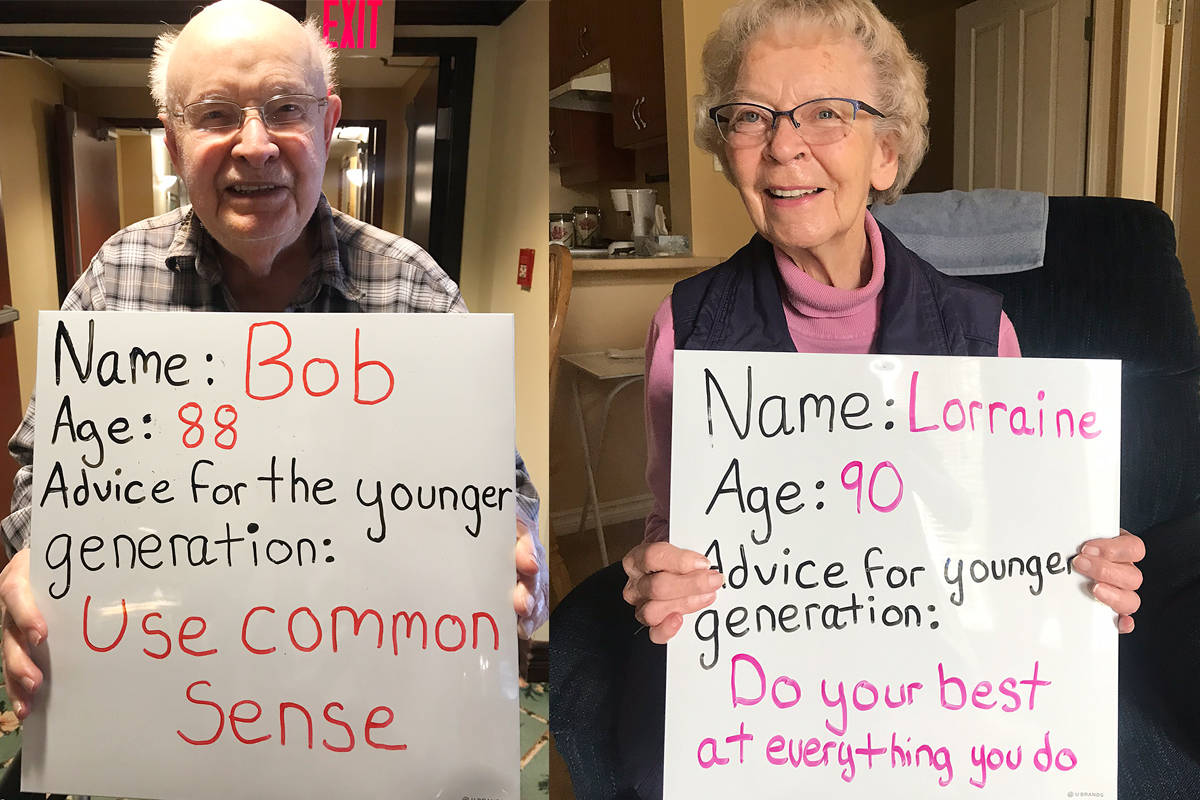 EXIT
Name: Bob
Age: 88
Advice for the younger
generation:
Use common
Sense
U BRANDS
Name: Lorraine
Age: 90
Advice for younger
generation:
Do your best
at everything you do
U BRANDS